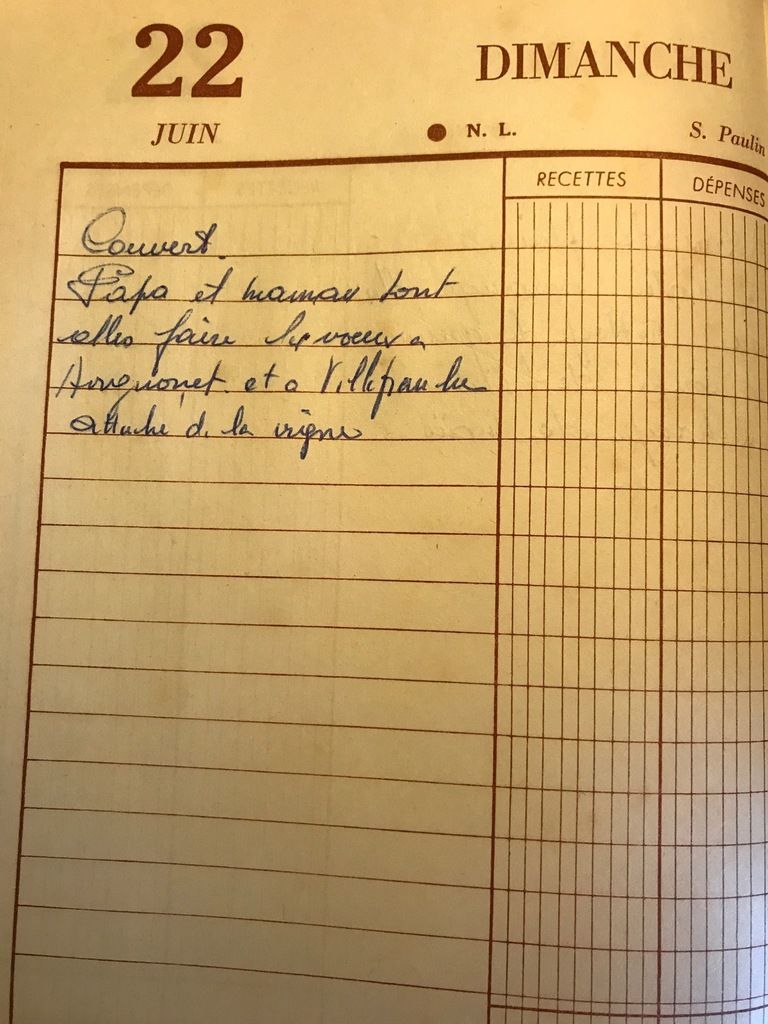 22 DIMANCHE
JUIN ● N. L. S. Paulin
RECETTES DÉPENSES
Couvert.
Papa et maman sont
alles faire les voeux a
Avignonet et a Villefranche
attaché d. la vigne